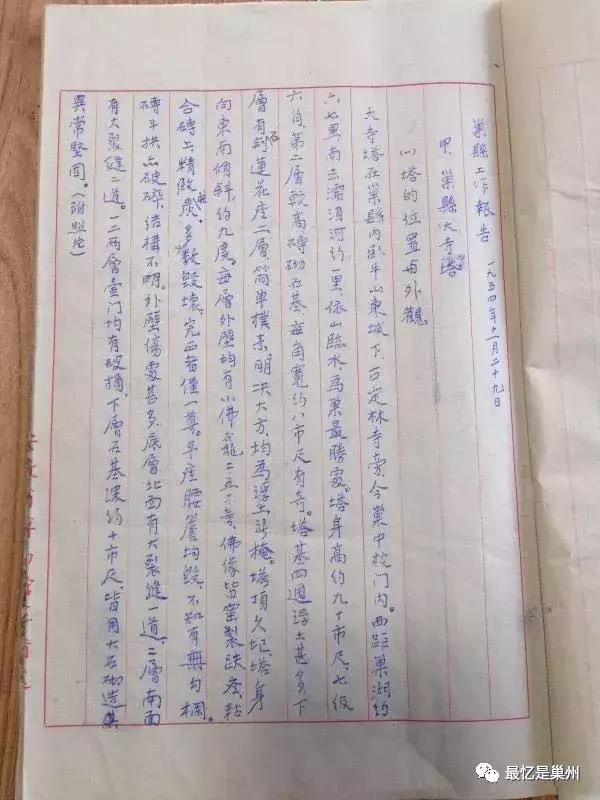 巢縣工作報告 一九五四年十一月二十九日
甲、巢縣大寺塔
(一)塔的位置与外觀
大寺塔在巢縣內卧牛山東坡下,古定林寺旁今巢中校门内。西距巢湖約
六七里,南去濡湏河約一里,依山臨水,為巢最勝處。塔身高約九十市尺,七级
六角,第二層較高,磚砌石基,每角寬約八市尺有奇。塔基四週浮土甚多,下
層有刻石蓮花座二層,简單撲素,明决大方,均為浮土斗掩。塔頂久圮,塔身
向東南傾斜,約九度。每層外壁均有小佛龕二五不等,佛像皆窑製趺座,粘
合磚上,精緻,多数毀壞,完西者僅一尊。平座腰簷均毁,不知有無勾栏。
磚斗拱亦破碎,結構不明。外壁傷處甚多,底層北西有大裂缝一道,二層南面
有大裂缝二道。一二两層壼门均有破損,下層石基深約十市尺,皆用大石砌造,
異常堅固。(附照片)
最忆是巢州